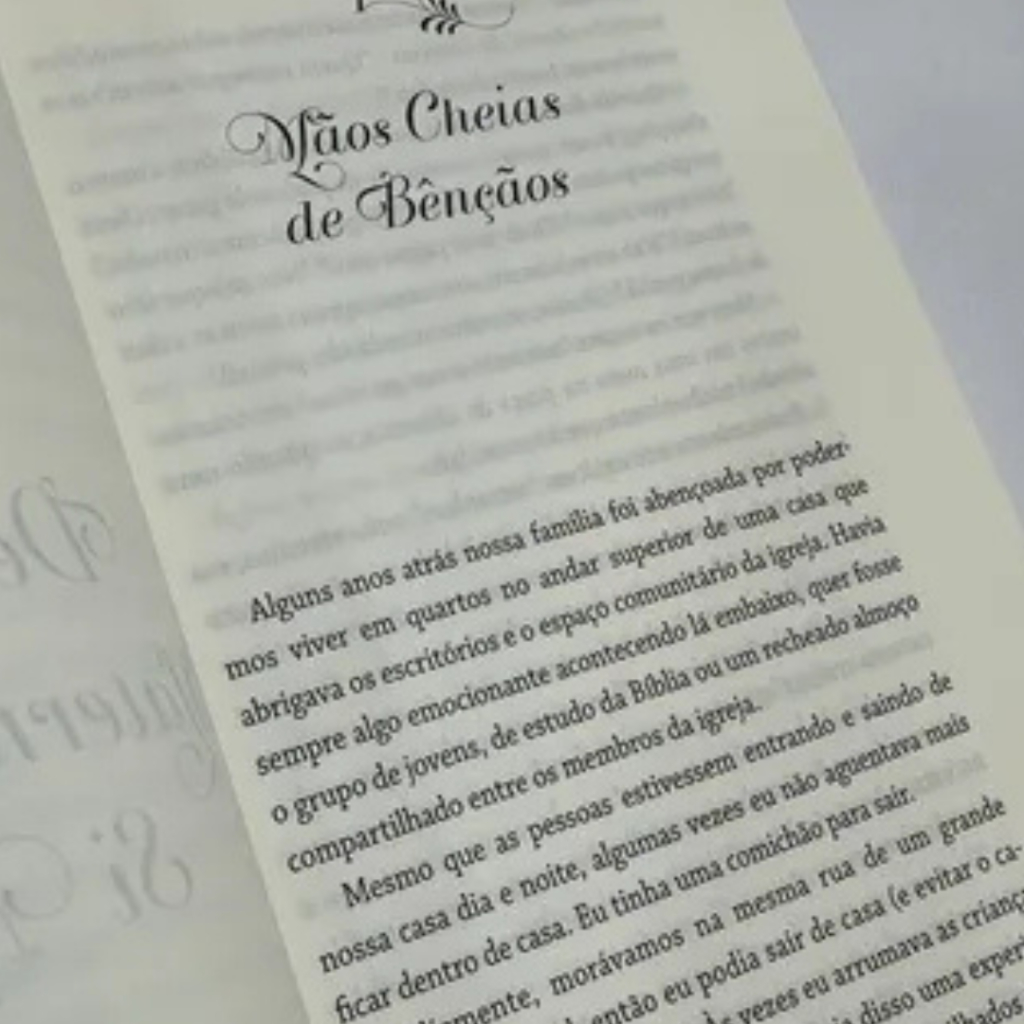 Mãos Cheias
de Bênçãos
Alguns anos atrás nossa família foi abençoada por poder-
mos viver em quartos no andar superior de uma casa que
abrigava os escritórios e o espaço comunitário da igreja. Havia
sempre algo emocionante acontecendo lá embaixo, quer fosse
o grupo de jovens, de estudo da Bíblia ou um recheado almoço
compartilhado entre os membros da igreja.
Mesmo que as pessoas estivessem entrando e saindo de
nossa casa dia e noite, algumas vezes eu não aguentava mais
ficar dentro de casa. Eu tinha uma comichão para sair.
morávamos na mesma rua de um grande
então eu podia sair de casa (e evitar o ca-
vezes eu arrumava as crianç
disso uma experi